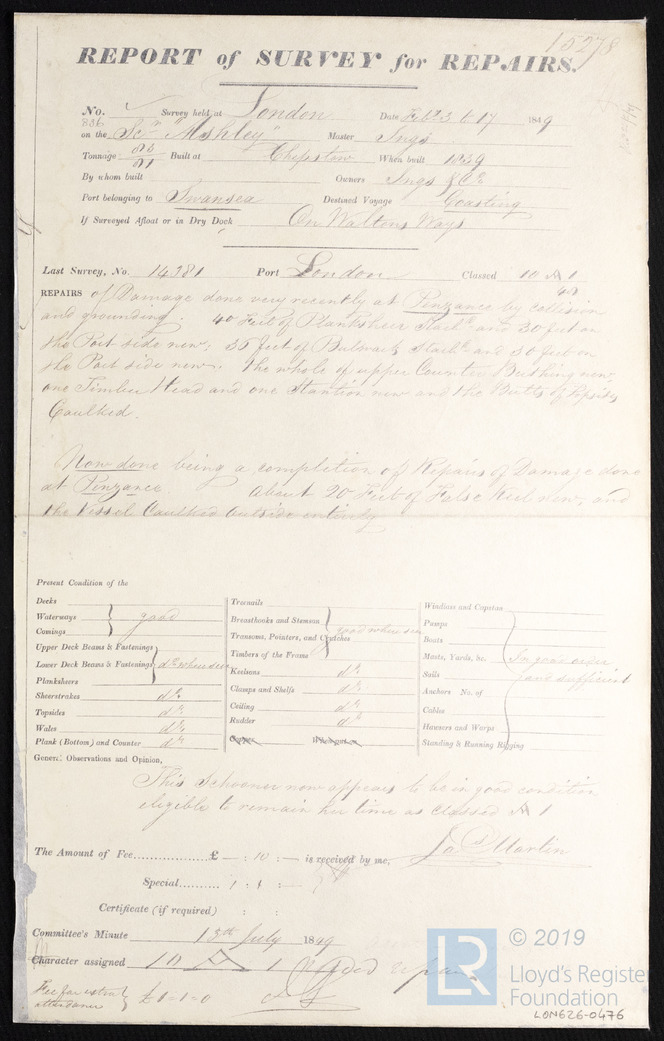 15278
REPORT of SURVEY for REPAIRS.
No. Survey held at London Date Feb 3 to 17 1849
836
on the Scr "Ashley" Master Ings
Tonnage 83/81 Built at Chepstow When built 1839
By whom built Owners Ings & Co
Port belonging to Swansea Destined Voyage Coasting
If Surveyed Afloat or in Dry Dock On Waltons Ways
Last Survey, No. 14381 Port London Classed 10 A 1
REPAIRS of Damage done very recently at Penzance by collision
and grounding. 40 Feet of Plansheer Starbd and 30 feet on
the Port side new: 35 feet of Bulwark Starbd and 30 feet on
the Port side new. The whole of upper Counter Bushing new,
one Timber Head and one Stantion new and the Butts of Topsides
Caulked.
Now done being a completion of Repairs of Damage done
at Penzance About 20 Feet of False Keel new, and
the Vessel Caulked Outside entirely
Present Condition of the
Decks
Waterways good
Comings
Upper Deck Beams & Fastenings
Lower Deck Beams & Fastenings do where seen
Planksheers
Sheerstrakes do
Topsides do
Wales do
Plank (Bottom) and Counter do
Treenails
Breasthooks and Stemson
Transoms, Pointers, and Crutches good where seen
Timbers of the Frame
Keelsons do
Clamps and Shelfs do
Ceiling do
Rudder do
Windlass and Capstan
Pumps
Boats
Masts, Yards, &c. In good order
Sails and sufficient
Anchors No. of
Cables
Hausers and Warps
Standing & Running Rigging
General Observations and Opinion,
This Schooner now appears to be in good condition
eligible to remain her time as classed A 1
The Amount of Fee............... £ — : 10 : — is received by me, Jas Martin
Special......... 1 : 1 : —
Certificate (if required) : :
Committee's Minute 13th July 1849
Character assigned 10 A 1
Fee for extra attendance £1=1=0
LR
© 2019
Lloyd's Register
Foundation
LON626-0476